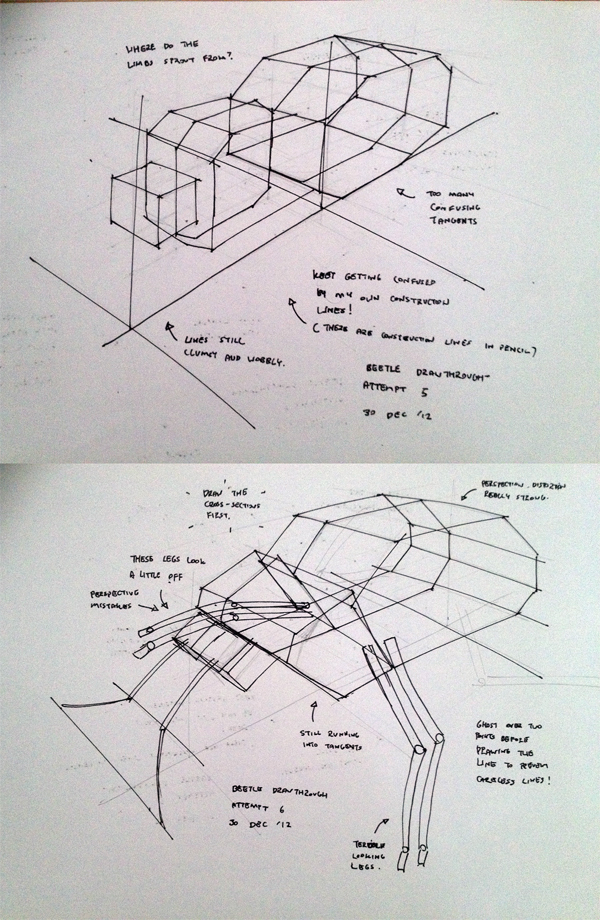 WHERE DO THE
LIMBS SPROUT FROM?
TOO MANY
CONFUSING
TANGENTS
KEEP GETTING CONFUSED
BY MY OWN CONSTRUCTION
LINES!
( THERE ARE CONSTRUCTION LINES IN PENCIL )
LINES STILL
CLUMSY AND WOBBLY.
BEETLE DRAWTHROUGH
ATTEMPT 5
30 DEC '12
DRAW THE
CROSS-SECTIONS
FIRST.
PERSPECTION DISTORTION
REALLY STRONG.
THESE LEGS LOOK
A LITTLE OFF
PERSPECTIVE
MISTAKES
STILL RUNNING
INTO TANGENTS
GHOST OVER TWO
POINTS BEFORE
DRAWING THE
LINE TO PREVENT
CARELESS LINES!
BEETLE DRAWTHROUGH
ATTEMPT 6
30 DEC '12
TERRIBLE
LOOKING
LEGS.